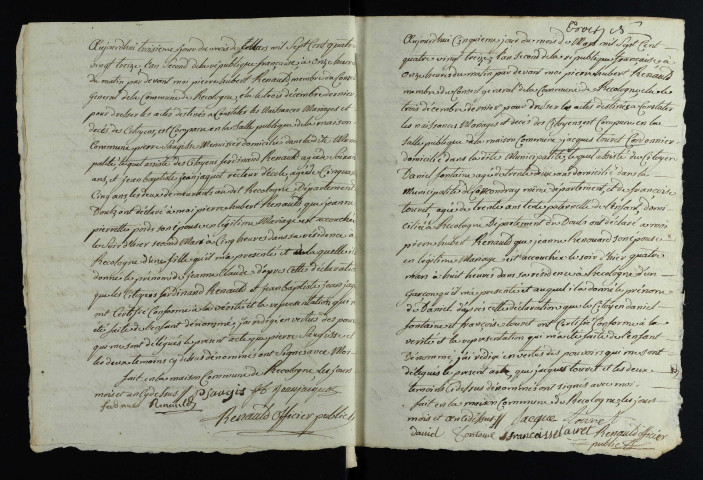 Aujourdhui troisieme jour du mois de Mars mil Sept Cent quatre
vingt treize l'an second de la republique francaise, a onze heures
du matin par devant moi pierre hubert Renauld membre du Conseil
general de la Commune de Recologne, elu le trois decembre dernier
pour dresser les actes destinés a Constater les Naissances Mariages et
decès des Citoyens, est Comparu en la Salle publique de la maison
Commune, pierre Saugis Menuisier domicilié dans ladite Munici
palité, lequel assisté des Citoyens ferdinand Renauld agé de
ans, et Jean baptiste jeanjaquot recteur d'école, agé de Cinquante
Cinq ans, les deux demeurants audit Recologne, Département du
Doubs, ont déclaré a moi pierre hubert Renauld, que jeanne
pierrette son épouse en légitime Mariage est accouchée
hier second Mars a Cinq heures dans sa résidence a
Recologne d'une fille qu'il m'a présenté et a laquelle il a
donné les prénoms de Jeanne Claude, d'après cette déclaration
que les Citoyens ferdinand Renauld et Jean baptiste jeanjaquot
ont Certifié Conforme a la vérité et la représentation qui m'a
été faite de l'enfant dénommé, j'ai rédigé en vertu des pouvoirs
qui me sont délégués le présent acte que pierre Saugis et
les deux temoins cy dessus dénommés ont Signé avec Moi
fait en la maison Commune de Recologne les jour
mois et an cy dessus P Saugis JB Jeanjaquot
ferdinand Renauld
Renauld officier public
trois
Aujourdhui Cinquieme jour du mois de Mars mil Sept Cent
quatre vingt treize l'an second de la republique francaise, a
onze heures du matin par devant moi pierre hubert Renauld
membre du Conseil general de la Commune de Recologne elu le
trois décembre dernier pour dresser les actes destinés a Constater
les naissances Mariages et décès des Citoyens est Comparu en la
Salle publique de la maison Commune, jacques touret Cordonnier
domicilié dans ladite Municipalité, lequel assisté du Citoyen
Daniel fontaine agé de trente deux ans domicilié dans la
Municipalité de même departement, et de francoise
touret, agée de trente ans de l'enfant, domi
ciliée a Recologne Departement du Doubs ont déclaré a moi
pierre hubert Renauld que jeanne Renouard son épouse
en légitime Mariage est accouchée le soir d'hier quatre
mars a huit heures dans sa résidence a Recologne d'un
Garçon qu'il m'a présenté et auquel il a donné le prénom
de Daniel, d'après cette déclaration que le Citoyen daniel
fontaine et francoise touret ont Certifié Conforme a la
verité et la représentation qui m'a été faite de l'enfant
Dénommé, j'ai rédigé en vertu des pouvoirs qui me sont
délégués le présent acte, que jacques touret et les deux
temoins cy dessus dénommés ont signés avec moi.
fait en la maison Commune de Recologne les jour
mois et an cy dessus Jacque touret
daniel fontaine francoisse touret Renauld officier
public